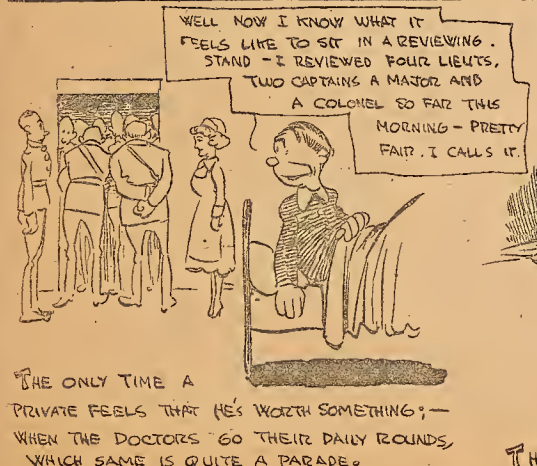 WELL NOW I KNOW WHAT IT
FEELS LIKE TO SIT IN A REVIEWING.
STAND - I REVIEWED FOUR LIEUTS,
TWO CAPTAINS A MAJOR AND
A COLONEL SO FAR THIS
MORNING - PRETTY
FAIR. I CALLS IT.
THE ONLY TIME A
PRIVATE FEELS THAT HE'S WORTH SOMETHING; -
WHEN THE DOCTORS GO THEIR DAILY ROUNDS,
WHICH SAME IS QUITE A PARADE.